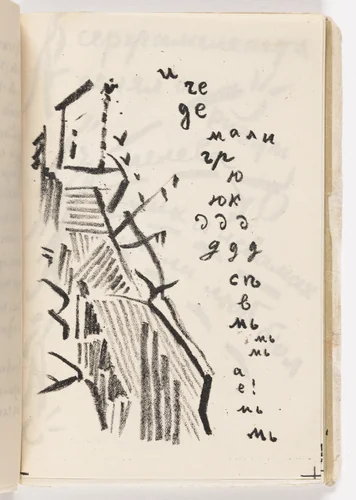 и че
де
мали
гр
ю
юк
д д д
д д д
сѣ
в
мь
мь
мь
а
е!
мь
мь